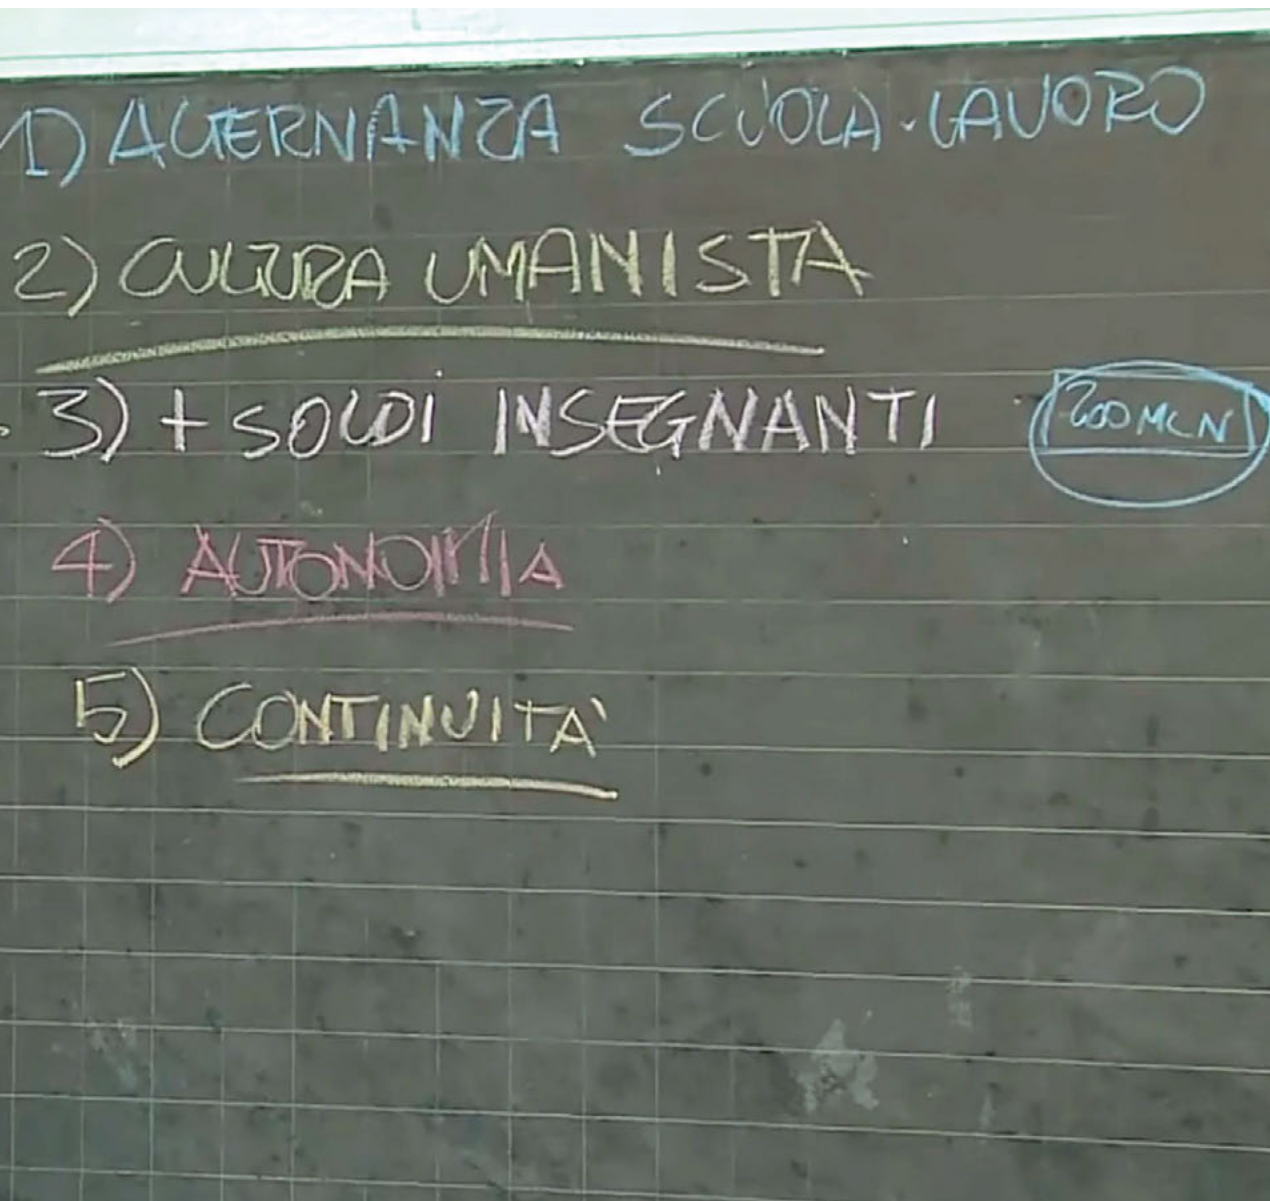 1) ALTERNANZA SCUOLA-LAVORO
2) CULTURA UMANISTA
3) + SOLDI INSEGNANTI 200 MLN
4) AUTONOMIA
5) CONTINUITA'